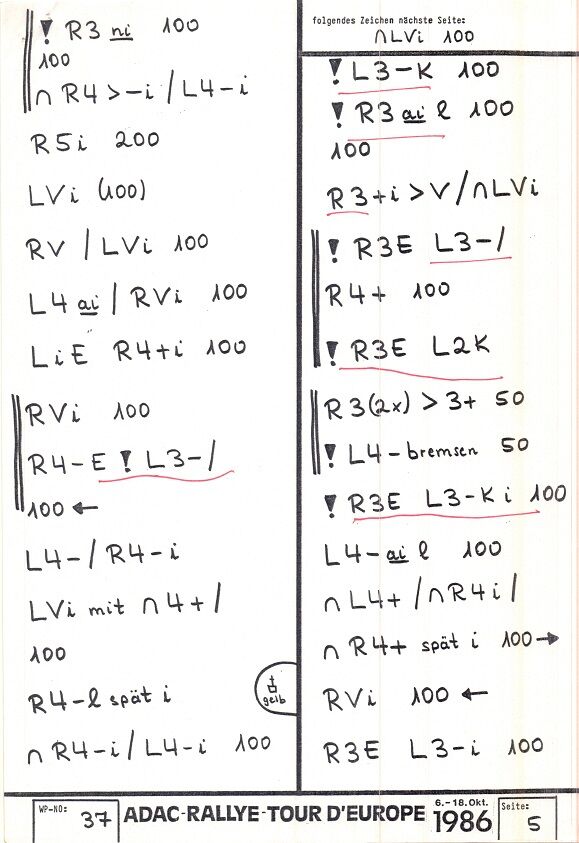 ! R3 ni 100
100
∩ R4 > - i / L4 - i
R5i 200
LVi (100)
RV / LVi 100
L4 ai / RVi 100
LiE R4+i 100
RVi 100
R4-E ! L3-/
100 ←
L4-/R4-i
LVi mit ∩ 4+/
100
R4-l spät i
gelb
∩ R4-i/L4-i 100
folgendes Zeichen nächste Seite:
∩LVi 100
! L3-K 100
! R3 ai l 100
100
R3+i > V/∩LVi
! R3E L3-/
R4+ 100
! R3E L2K
R3(2x) > 3+ 50
! L4-bremsen 50
! R3E L3-Ki 100
L4-ai l 100
∩L4+/∩R4i/
∩ R4+ spät i 100→
RVi 100 ←
R3E L3-i 100
WP-NO: 37
ADAC-RALLYE-TOUR D'EUROPE
6.-18.Okt.
1986
Seite: 5